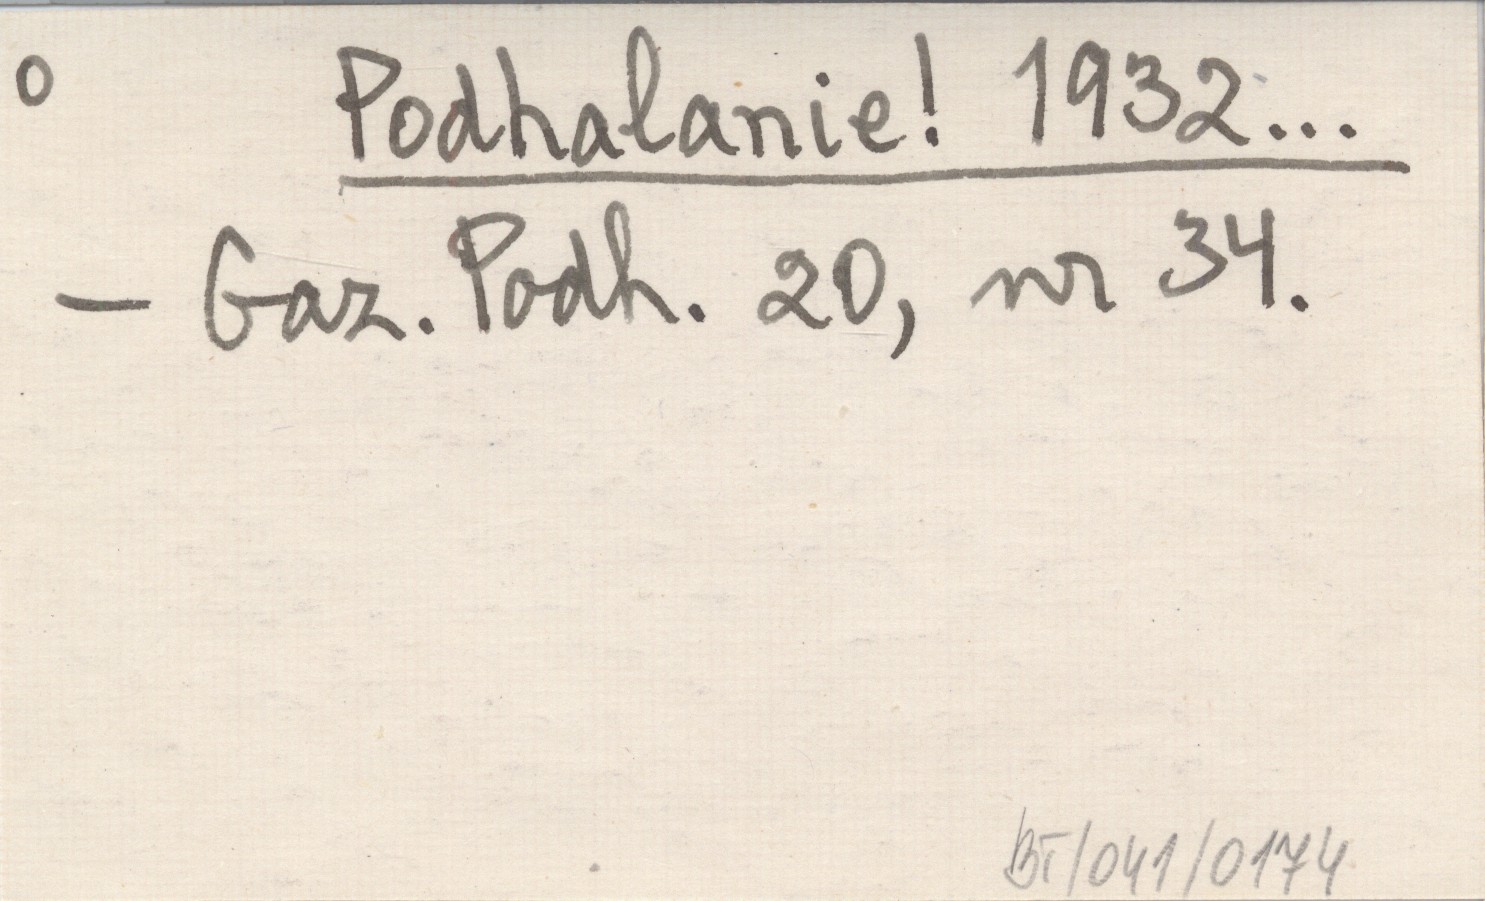 o Podhalanie! 1932...
— Gaz. Podh. 20, nr 34.
BT/041/0174